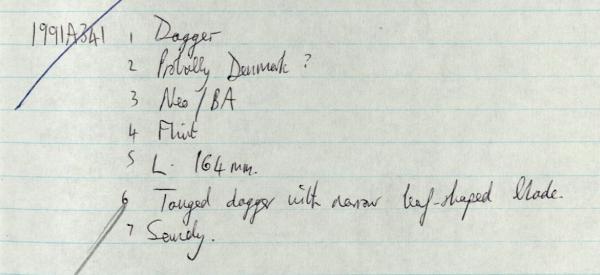 1991A341 1 Dagger
2 Probably Denmark ?
3 Neo/BA
4 Flint
5 L. 164mm.
6 Tanged dagger with narrow leaf-shaped blade.
7 Sturdy.